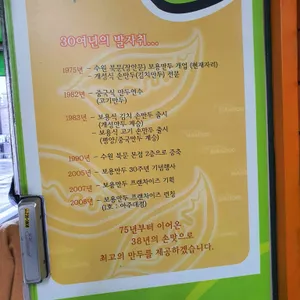 30여년의 발자취...
1975년 - 수원 북문(장안문) 보용만두 개업 (현재자리)
- 개성식 손만두(김치만두) 전문
1982년 - 중국식 만두연수
(고기만두)
1983년 - 보용식 김치 손만두 출시
(개성만두 계승)
- 보용식 고기 손만두 출시
(평양/중국만두 계승)
1990년 - 수원 북문 본점 2층으로 증축
2005년 - 보용만두 30주년 기념행사
2007년 - 보용만두 프랜차이즈 기획
2008년 - 보용만두 프랜차이즈 런칭
(1호 : 아주대점)
75년부터 이어온
38년의 손맛으로
최고의 만두를 제공하겠습니다.